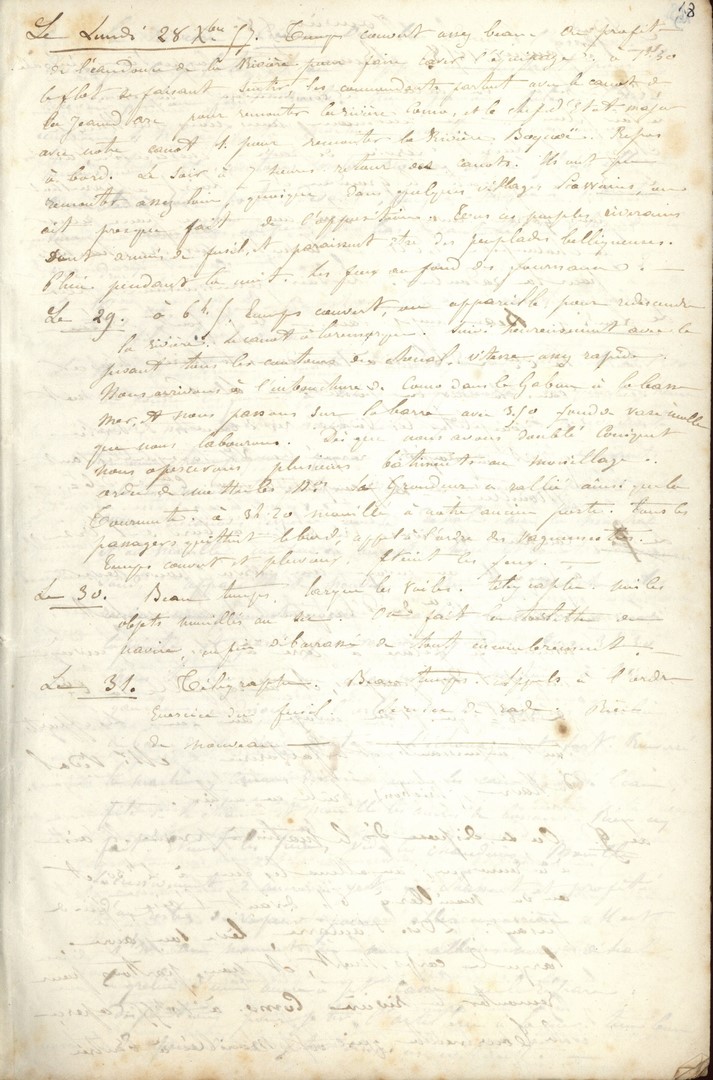 18
Le Lundi 28 Xbre 57. Temps couvert assez beau. On profit
de l'eau douce de la Rivière pour faire
le flot se faisant sentir, les commandants partent avec le canot de
la Jeanne d'arc pour remonter la rivière Como, et le chef d'Etat major
avec notre canot 1. pour remonter la Rivière Repos
à bord. Le soir à 7 heures retour des canots. Ils ont pu
remonter assez loin, quoique dans quelques villages on
ait presque fait de l'opposition. Tous ces peuples riverains
sont armés de fusil, et paraissent être des peuplades belliqueuses.
Pluie pendant la nuit. les feux au fond des fourneaux. —
Le 29. à 6h Temps couvert, on appareille pour redescendre
la rivière. le canot à la remorque. heureusement avec le
tous les contours du chenal, vitesse assez rapide.
Nous arrivons à l'embouchure du Como dans le Gabon à la basse
mer, et nous passons sur la barre avec 3.50 fond de vase molle
que nous labourons. Dès que nous avons doublé Coniquet
nous apercevons plusieurs bâtiments au mouillage.
ordre de mettre les La Grondeur a rallié ainsi que la
Tourmente. à 3h.20 mouillé à notre ancien poste. Tous les
passagers quittent le bord, appel à l'ordre des
Temps couvert et pluvieux. Eteint les feux. —
Le 30. Beau temps. largué les voiles. mis les
objets mouillés au sec. On fait la toilette du
navire, un peu débarrassé de tout encombrement.
Le 31. Télégraphe. Beau temps. à l'ordre
Exercice du fusil. de rade. Rien
de nouveau